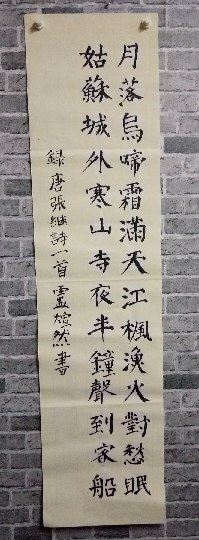 月落烏啼霜滿天江楓漁火對愁眠
姑蘇城外寒山寺夜半鐘聲到客船
錄唐張継詩一首然書